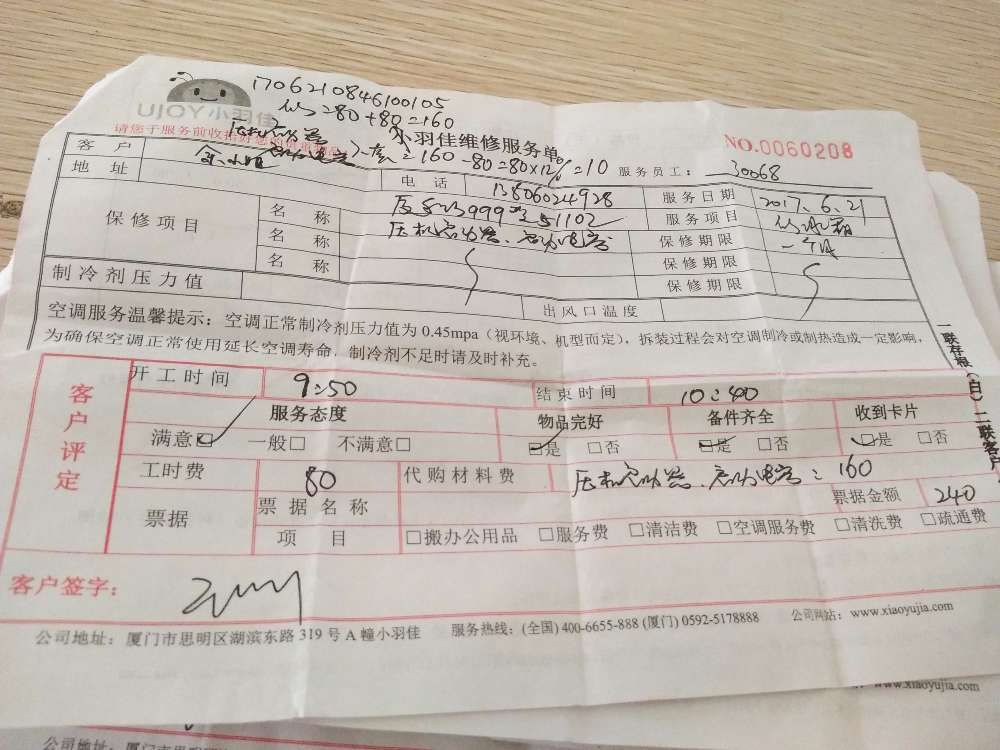 1706210846100105
=80+80=160
UJOY小羽佳
请您于服务前收拾好您的贵重物品
小羽佳维修服务单
NO.0060208
=160-80=80×12%=10
服务员工： 30068
客户
电话 13806024928
服务日期 2017.6.21
地址
服务项目
保修项目
名称 压机启动器、启动电容
保修期限 一个月
名称
保修期限
名称
保修期限
制冷剂压力值
出风口温度
空调服务温馨提示：空调正常制冷剂压力值为 0.45mpa（视环境、机型而定），拆装过程会对空调制冷或制热造成一定影响，
为确保空调正常使用延长空调寿命，制冷剂不足时请及时补充。
一联存根（白）二联客户
客户评定
开工时间 9:50
结束时间 10:40
服务态度 物品完好 备件齐全 收到卡片
满意☑ 一般□ 不满意□ ☑是 □否 ☑是 □否 ☑是 □否
工时费 80
代购材料费 压机启动器、启动电容=160
票据
票据名称
票据金额 240
项目 □搬办公用品 □服务费 □清洁费 □空调服务费 □清洗费 □疏通费
客户签字：
公司地址：厦门市思明区湖滨东路 319 号 A 幢小羽佳 服务热线：(全国) 400-6655-888 (厦门) 0592-5178888 公司网站：www.xiaoyujia.com
www.xiaoyujia.com
公司地址：厦门市思明